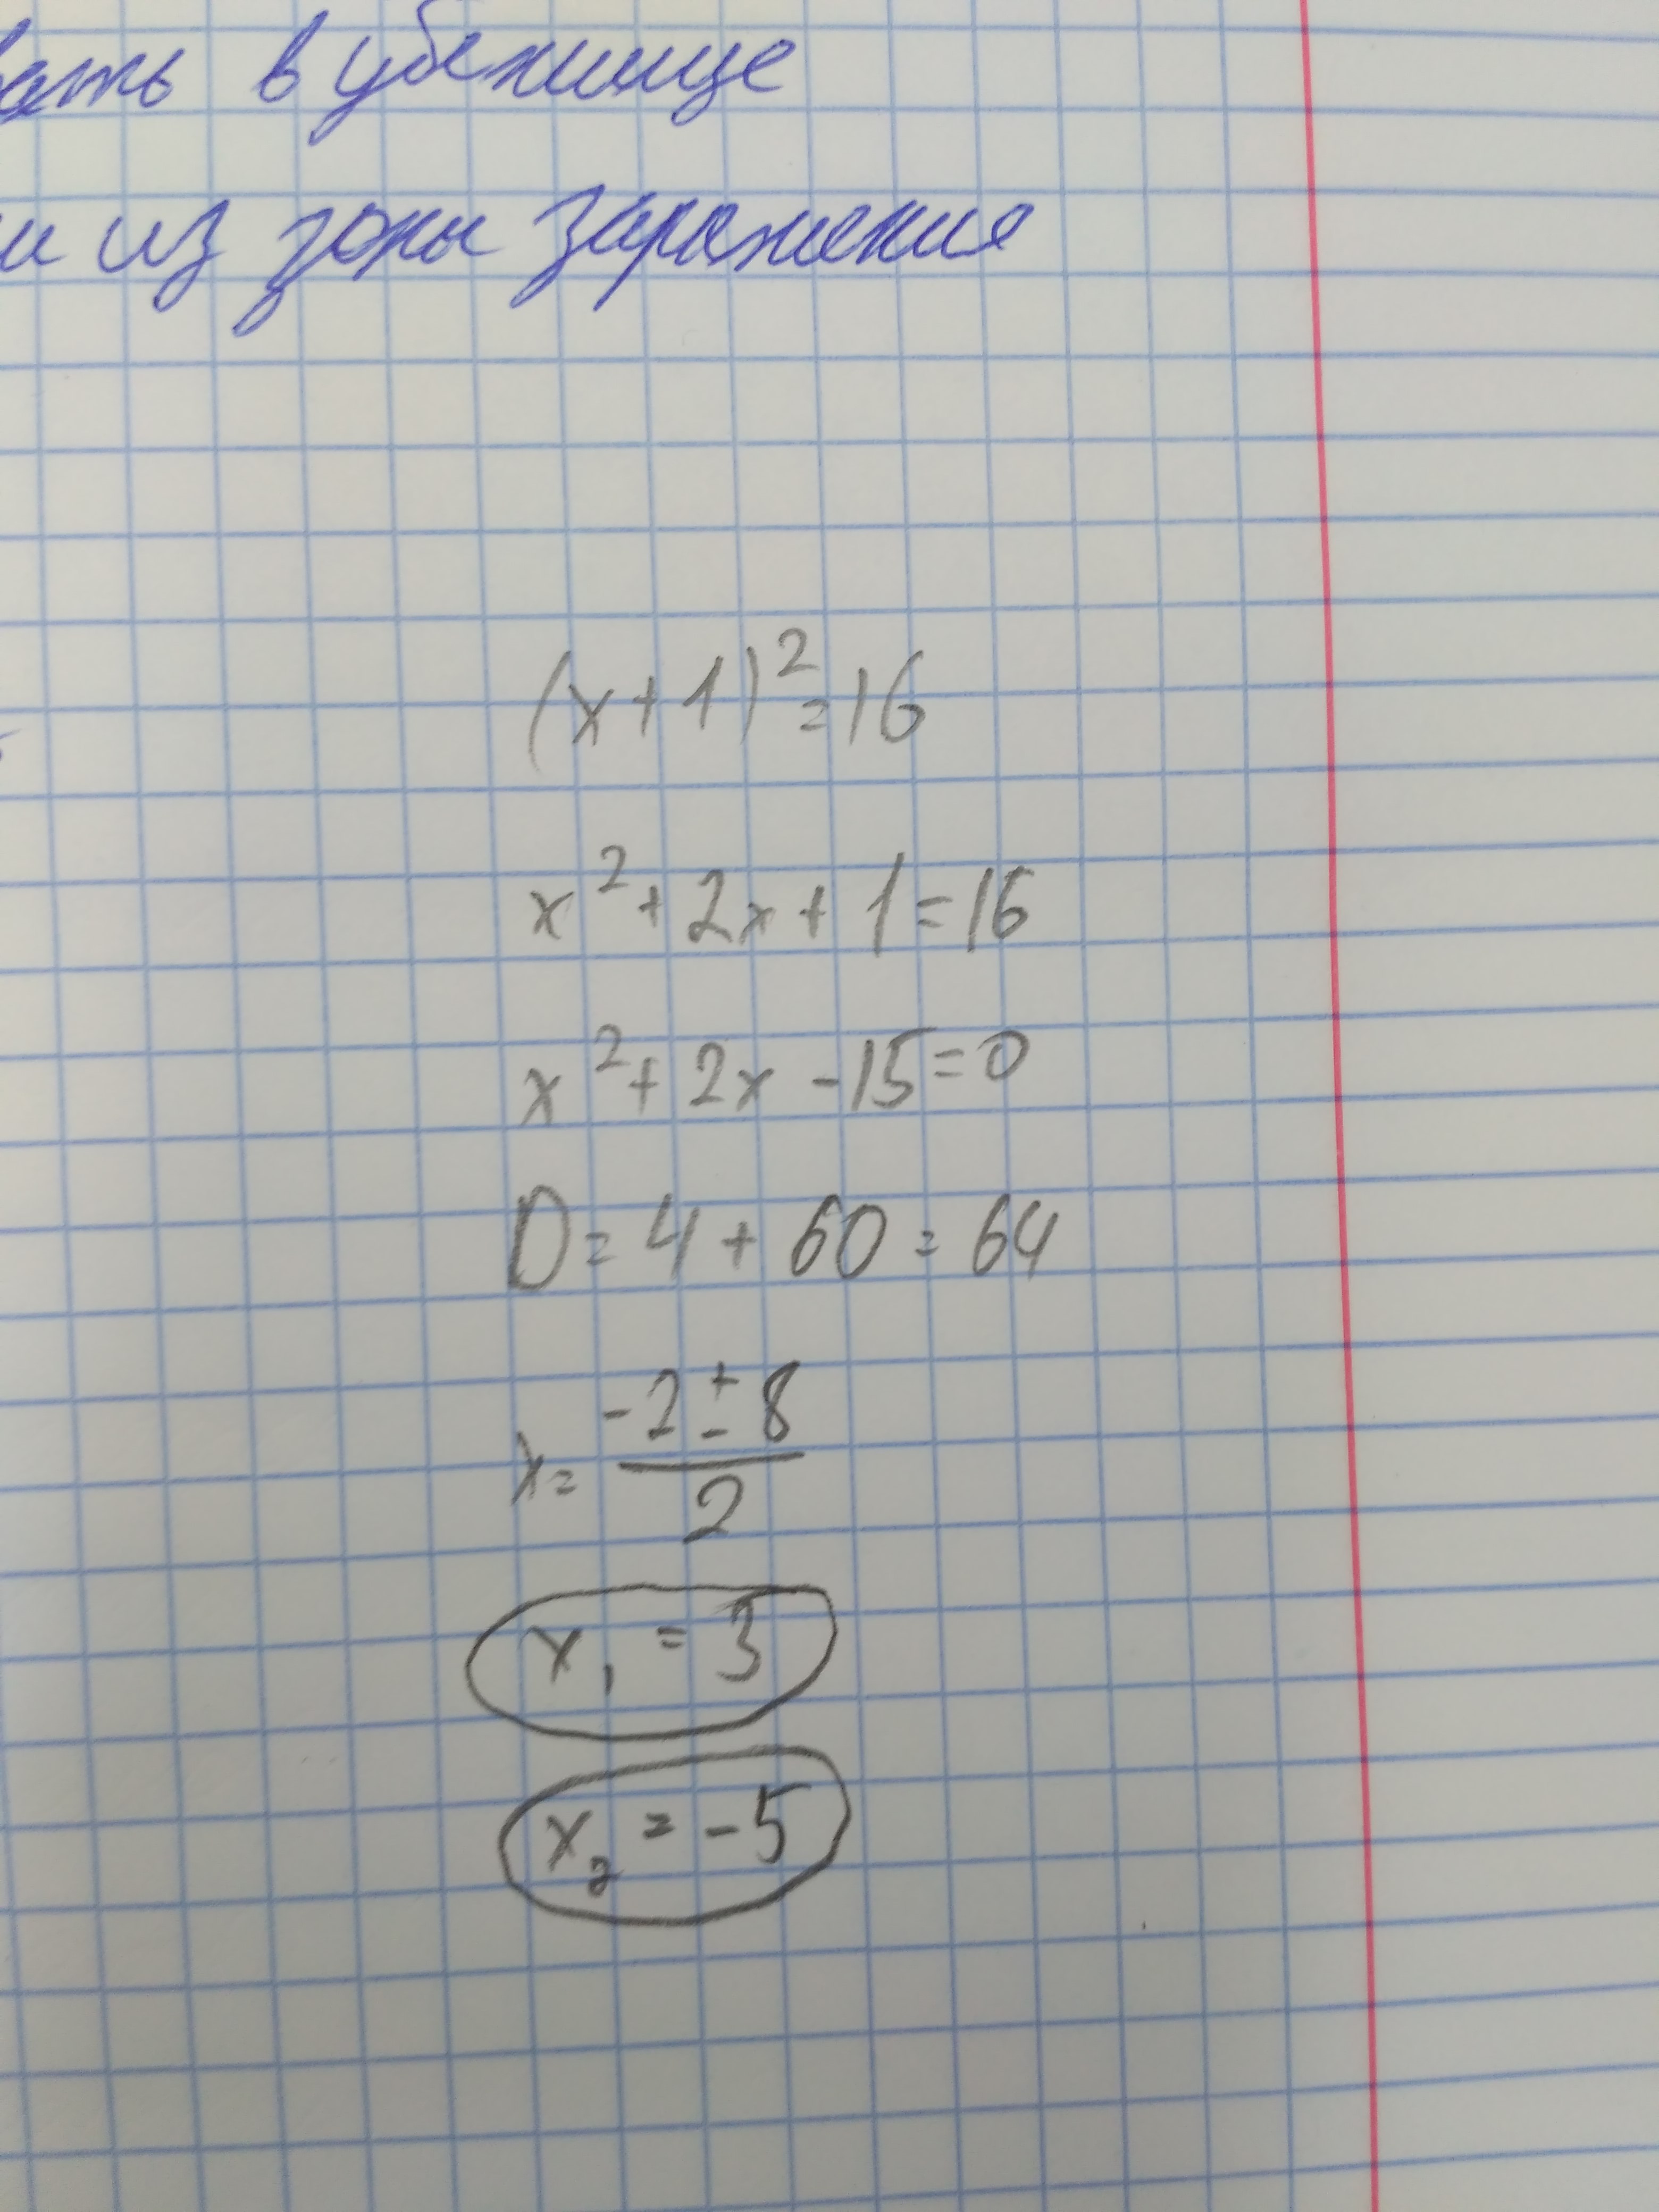 в убежище
из зоны заражения
(x+1)²=16
x²+2x+1=16
x²+2x-15=0
D=4+60=64
x=(-2±8)/2
x₁=3
x₂=-5